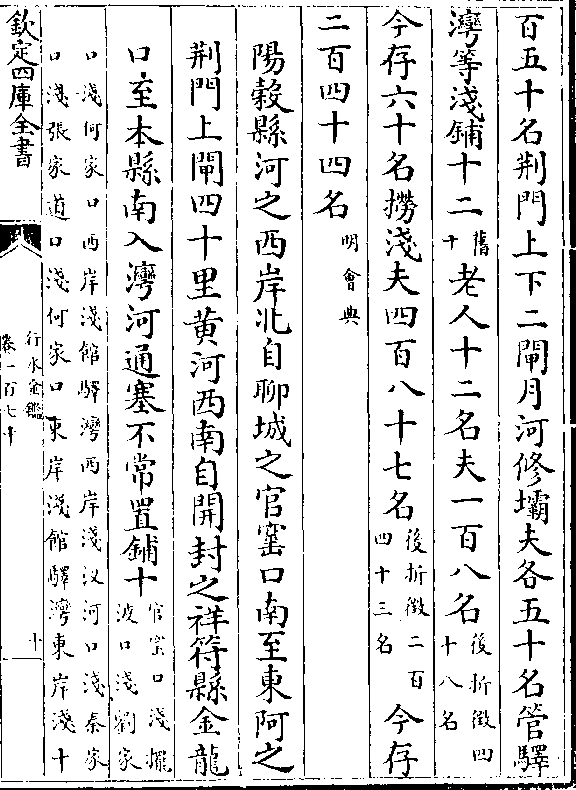 百五十名荆門上下二閘月河修壩夫各五十名管驛
灣等淺鋪十二舊十老人十二名夫一百八名後折徵四十八名
今存六十名撈淺夫四百八十七名後折徵二百四十三名今存
二百四十四名明會典
陽穀縣河之西岸北自聊城之官窰口南至東阿之
荆門上閘四十里黄河西南自開封之祥符縣金龍
口至本縣南入灣河通塞不常置鋪十官窰口淺擺波口淺劉家
口淺何家口西岸淺館驛灣西岸淺汊河口淺秦家
口淺張家道口淺何家口東岸淺館驛灣東岸淺十
欽定四庫全書
行水金鑑
卷一百七十
十